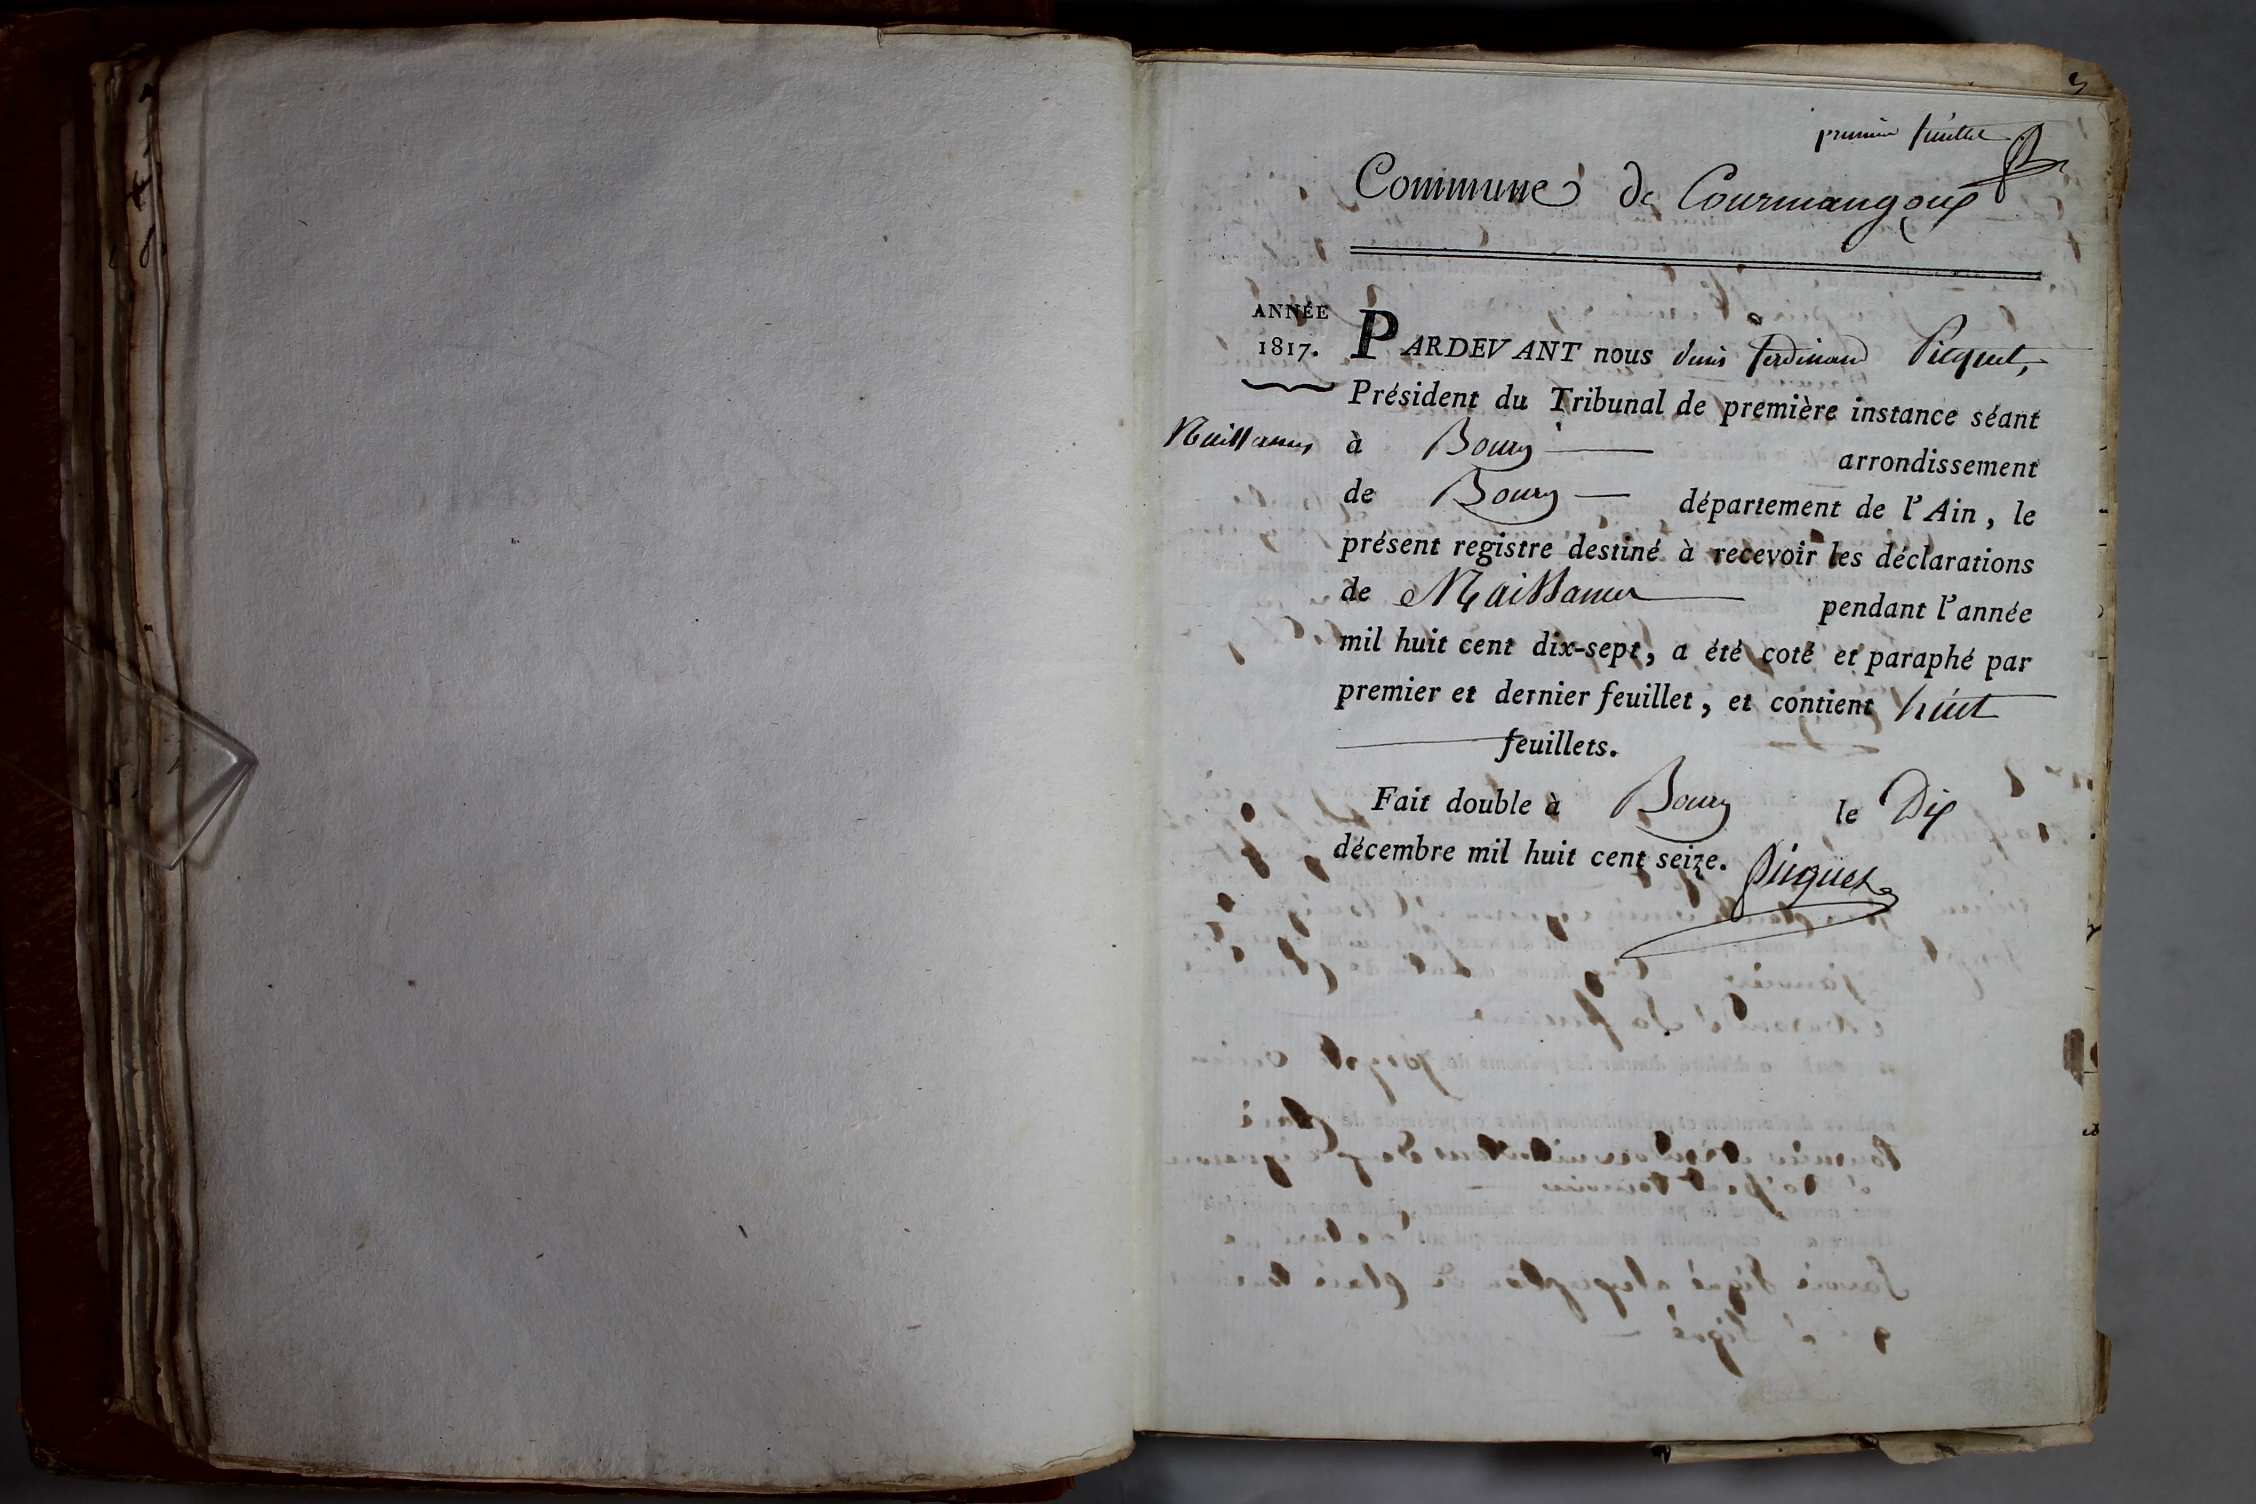 premier feuillet
Commune de Courmangoux
ANNÉE
1817.
PARDEVANT nous Denis Ferdinand Picquet,
Président du Tribunal de première instance séant
Naissances
à Bourg arrondissement
de Bourg département de l'Ain, le
présent registre destiné à recevoir les déclarations
de Naissances pendant l'année
mil huit cent dix-sept, a été coté et paraphé par
premier et dernier feuillet, et contient huit
feuillets.
Fait double à Bourg le Dix
décembre mil huit cent seize.
Picquet